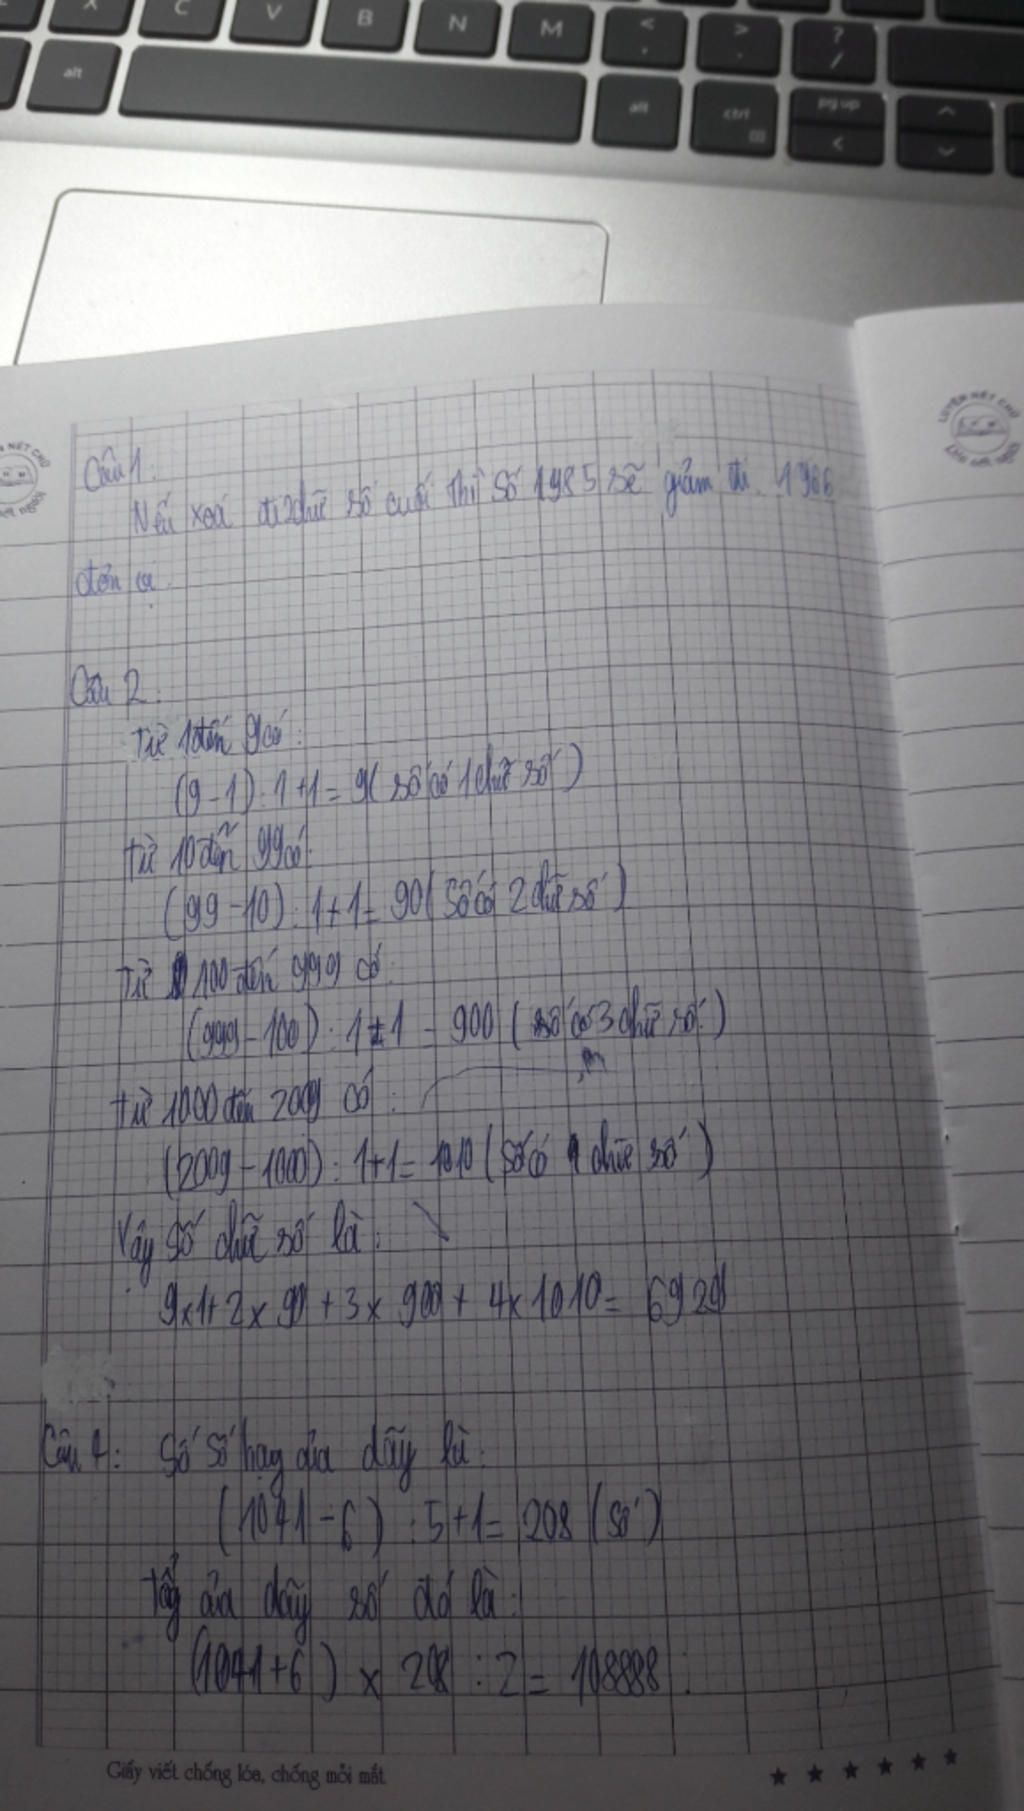 X C V B N M < , > . ? /
alt alt ctrl pg up <
LUYỆN NÉT CHỮ
Câu 1:
Nếu xoá đi 2 chữ số cuối thì số 1985 sẽ giảm đi 1966
đơn vị.
Câu 2:
Từ 1 đến 9 có:
(9-1):1+1=9( số có 1 chữ số )
Từ 10 đến 99 có:
(99-10):1+1=90( số có 2 chữ số )
Từ 100 đến 999 có:
(999-100):1+1=900 ( số có 3 chữ số )
Từ 1000 đến 2009 có:
(2009-1000):1+1=1010 ( số có 4 chữ số )
Vậy số chữ số là:
9x1+2x90+3x900+4x1010=6929
Câu 4: Số số hạng của dãy là:
(1041-6):5+1=208 (số)
Tổng của dãy số đó là:
(1041+6)x208:2=108888
Giấy viết chống lóa, chống mỏi mắt